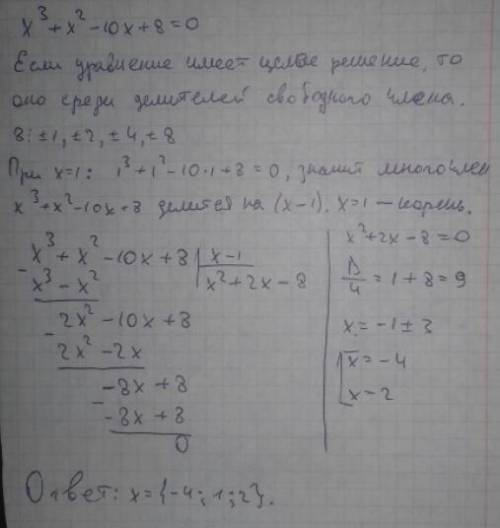 x³ + x² - 10x + 8 = 0
Если уравнение имеет целое решение, то
оно среди делителей свободного члена.
8: ±1, ±2, ±4, ±8
При x=1: 1³ + 1² - 10·1 + 8 = 0, значит многочлен
x³ + x² - 10x + 8 делится на (x-1). x=1 — корень.
x³ + x² - 10x + 8 | x-1
- x³ - x² | x² + 2x - 8
2x² - 10x + 8
- 2x² - 2x
-8x + 8
- -8x + 8
0
x² + 2x - 8 = 0
D/4 = 1 + 8 = 9
x = -1 ± 3
[x = -4
x = 2
Ответ: x = {-4; 1; 2}.